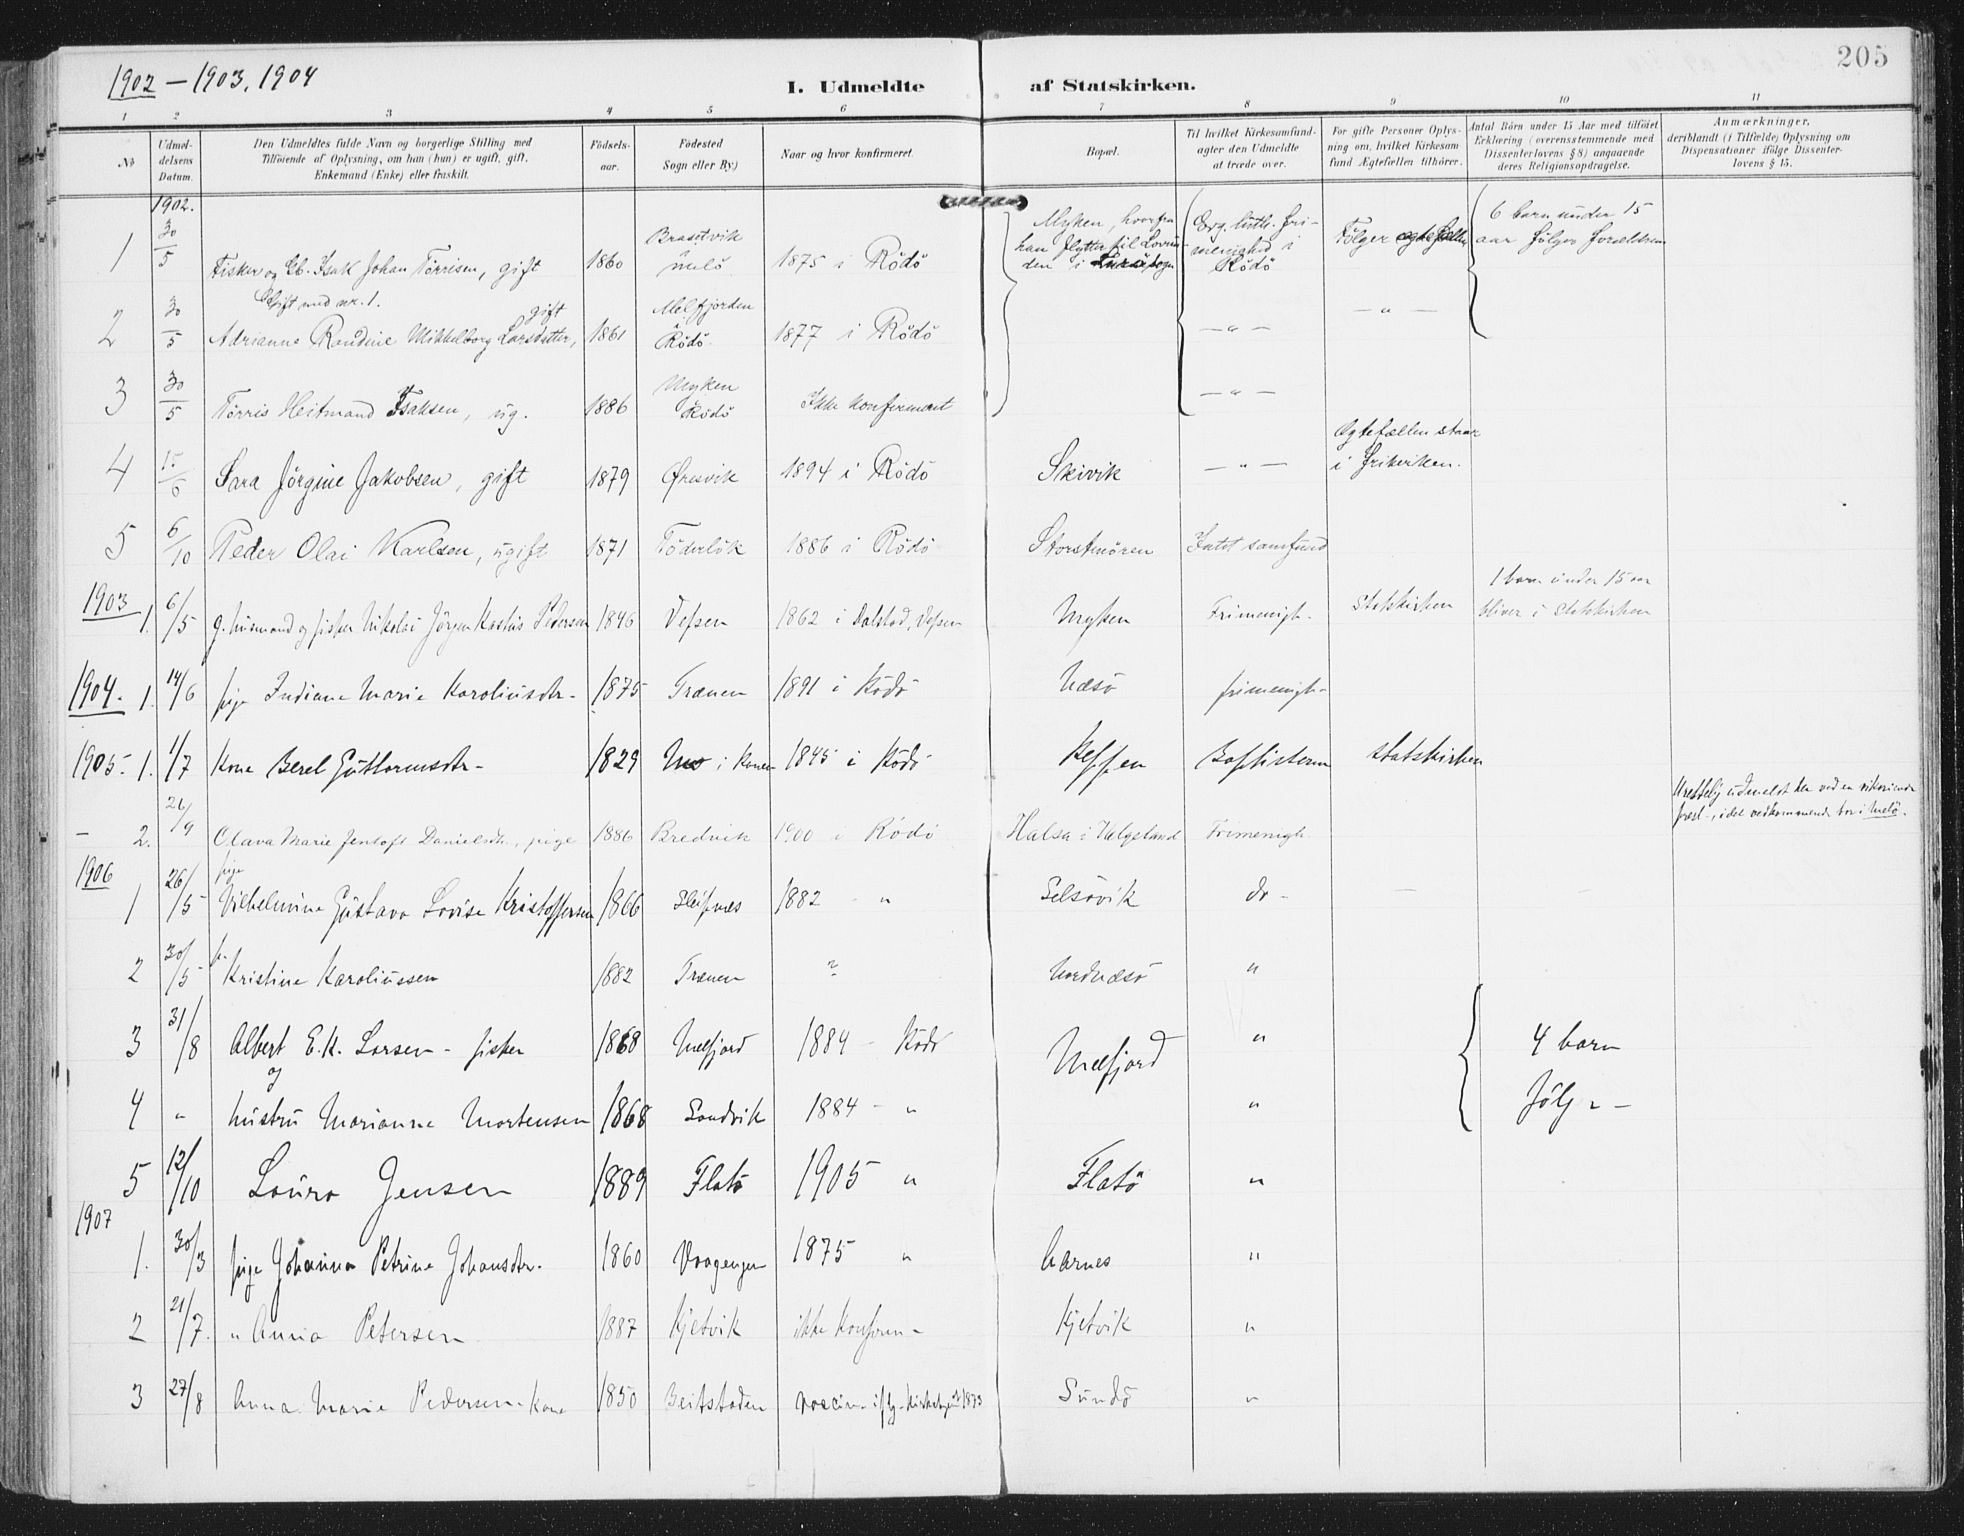 1902 — 1903, 1904
I. Udmeldte af Statskirken.
205
1 2 3 4 5 6 7 8 9 10 11
No
Udmel-
delsens
Datum.
Den Udmeldtes fulde Navn og borgerlige Stilling med
Tilföiende af Oplysning, om han (hun) er ugift, gift,
Enkemand (Enke) eller fraskilt.
Födsels-
aar.
Födested
Sogn eller By.)
Naar og hvor konfirmeret.
Bopæl.
Til hvilket Kirkesamfund-
agter den Udmeldte
at træde over.
For gifte Personer Oplys-
ning om, hvilket Kirkesam
fund Ægtefællen tilhörer.
Antal Börn under 15 Aar med tilföiet
Erklæring (overensstemmende med
Dissenterlovens § 8) angaaende
deres Religionsopdragelse.
Anmærkninger,
deriblandt (i Tilfælde) Oplysning om
Dispensationer ifölge Dissenter-
lovens § 15.
1902.
1 30/5 Fisker og Gb. Isak Johan Törrisen, gift 1860 melö 1875 i Rödö Myken, hvorfra
han flytter til Lovun-
den i Evg. luth. fri-
menighed i
Rödö Følger 6 barn under 15
aar følger forældrene
2 30/5 Gift med nr. 1.
Adrianne Rondine Mikkelborg Larsdatter, gift 1861 Melfjorden
i
Rödö 1877 i Rödö — " — — " —
3 30/5 Törris Heitmand Isaksen, ug. 1886 Myken
Rödö Ikke konfirmeret — " —
4 15/6 Sara Jörgine Jakobsen, gift 1879 Öresvik 1894 i Rödö Skivik — " — Ægtefællen staar
i frikirken.
5 6/10 Peder Olai Karlsen, ugift 1871 1886 i Rödö Intet samfund
1903
1. 6/5 g. husmand og fisker Nikolai Jörgen Pedersen 1846 Vefsen 1862 i Dolstad, Vefsen Myken Frimenigh. Statskirken 1 barn under 15 aar
bliver i statskirken
1904. 1. 14/6 pige Indiane Marie Karoliusdtr. 1875 Trænen 1891 i Rödö Næsö frimenigh.
1905. 1. 1/7 Kone Berel Guttormsdtr. 1829 1845 i Rödö Baptisterne Statskirken
— 2. 26/9 Olava Marie Jentoft Danielsdtr., pige 1886 Bredvik 1900 i Rödö Halsa i Helgeland Frimenigh. Urettelig udmeldt her ved en vikarierende
præst, idet vedkommende bor i Melö.
1906
1 26/5 pige
Vilhelmine Gustava Lovise Kristoffersen 1866 Sleipnes 1882 - " Selsövik do -
2 30/5 p. Kristine Karoliussen 1882 Trænen ? Nordnæsö "
3 31/8 Albert E. K. Larsen - fisker 1868 Melfjord 1884 - Rödö Melfjord " 4 barn
følg -
og
4 " hustru Marianne Mortensen 1868 Sandvik 1884 - " "
5 12/10 Laura Jensen 1889 Flatö 1905 " Flatö "
1907
1. 30/3 pige Johanna Petrine Johansdtr. 1860 Vaagengen 1875 " Aarnes "
2 21/7. " Anna Petersen 1887 Kjelvik ikke konfirm - Kjelvik "
3 27/8 Anna Marie Pedersen - kone 1850 Beitstaden 1873 Sundö "